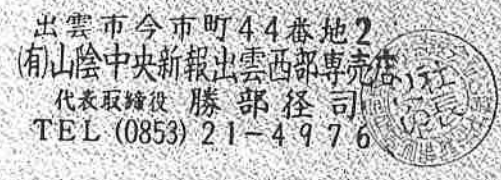 出雲市今市町44番地2
(有)山陰中央新報出雲西部専売店
代表取締役 勝部径司
TEL (0853) 21-4976